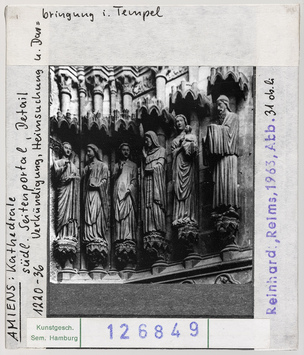 AMIENS: Kathedrale
südl. Seitenportal, Detail
1220-36 Verkündigung, Heimsuchung u. Dar=
bringung i. Tempel
Reinhardt, Reims, 1963, Abb. 31 ob. li
Kunstgesch.
Sem. Hamburg
126849